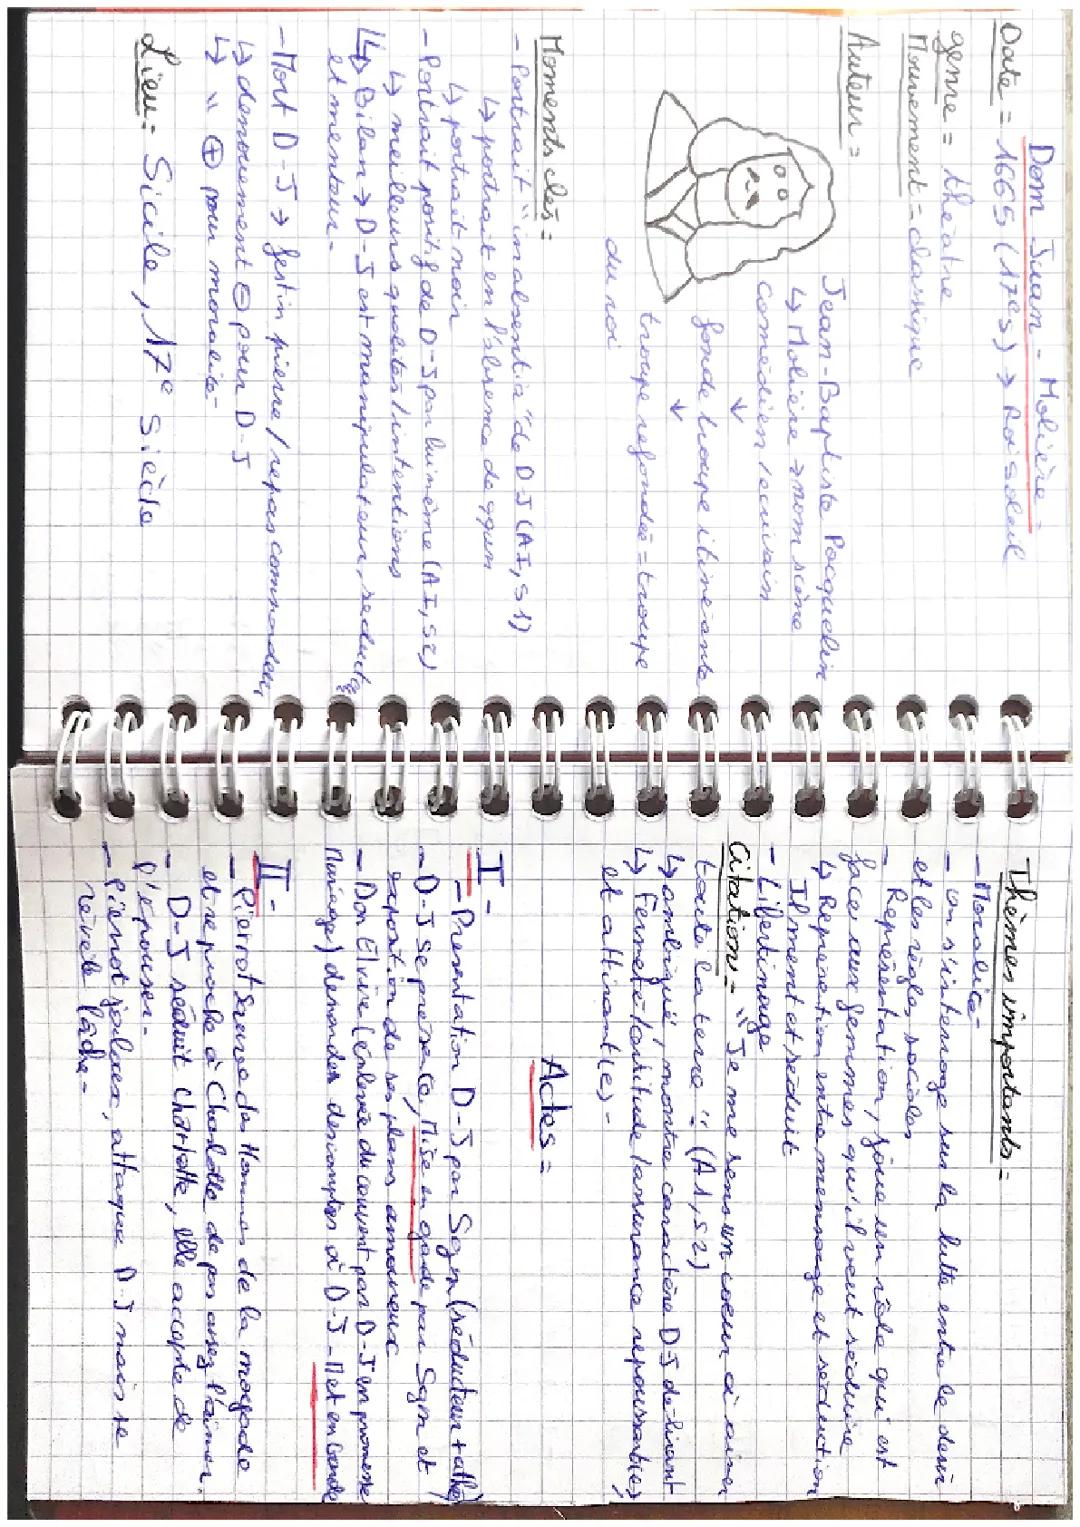 Dom Juan - Molière -
Date = 1665 (17es) → Roi Soleil
genre = théâtre
Mouvement = classique
Auteur =
Jean-Baptiste Pocquelin
↳ Molière → nom scène
comédien, écrivain
↓
fonde troupe itinérante
↓
troupe refondée = troupe
du roi
Moments clés =
- Portrait "in absentia" de D J (AI, s1)
↳ portrait en l'absence de qqun
↳ portrait noir
- Portrait positif de D-J par lui même (AI, s2)
↳ meilleurs qualités/intentions
↳ Bilan → D-J est manipulateur, séducteur
et menteur -
- Mort D-J → festin pierre / repas commandeur
↳ dénouement ⊖ pour D-J
↳ " ⊕ pour moralité -
Lieu = Sicile, 17e siècle
Thèmes importants =
- Moralité -
- on s'interroge sur la lutte entre le désir
et les règles sociales
- Représentation, joue un rôle qui est
face aux femmes qu'il veut séduire
↳ Représention entre mensonge et séduction
Il ment et séduit
- Libertinage
Citation = "Je me sens un coeur à aimer
toute la terre" (A1, s2)
↳ ambiguë, montre caractère D-J déliant
↳ Fermeté-(attitude (assurance repoussable)
et attirant(e) -
Actes =
I -
- Présentation D-J par Sgn (séducteur + athé)
- D-J se présente, Mise en garde par Sgn et
exposition de ses plans amoureux
- Don Elvire (enlevée du couvent par D-J en promesse
Mariage) demandes descomptes à D-J - Met en Garde
II -
- Pierrot sauve des Hommes de la noyade
et reproche à Charlotte de pas assez l'aimer.
- D-J séduit Charlotte, elle accepte de
l'épouser -
- Pierrot jaloux, attaque D-J mais se
révèle lâche -